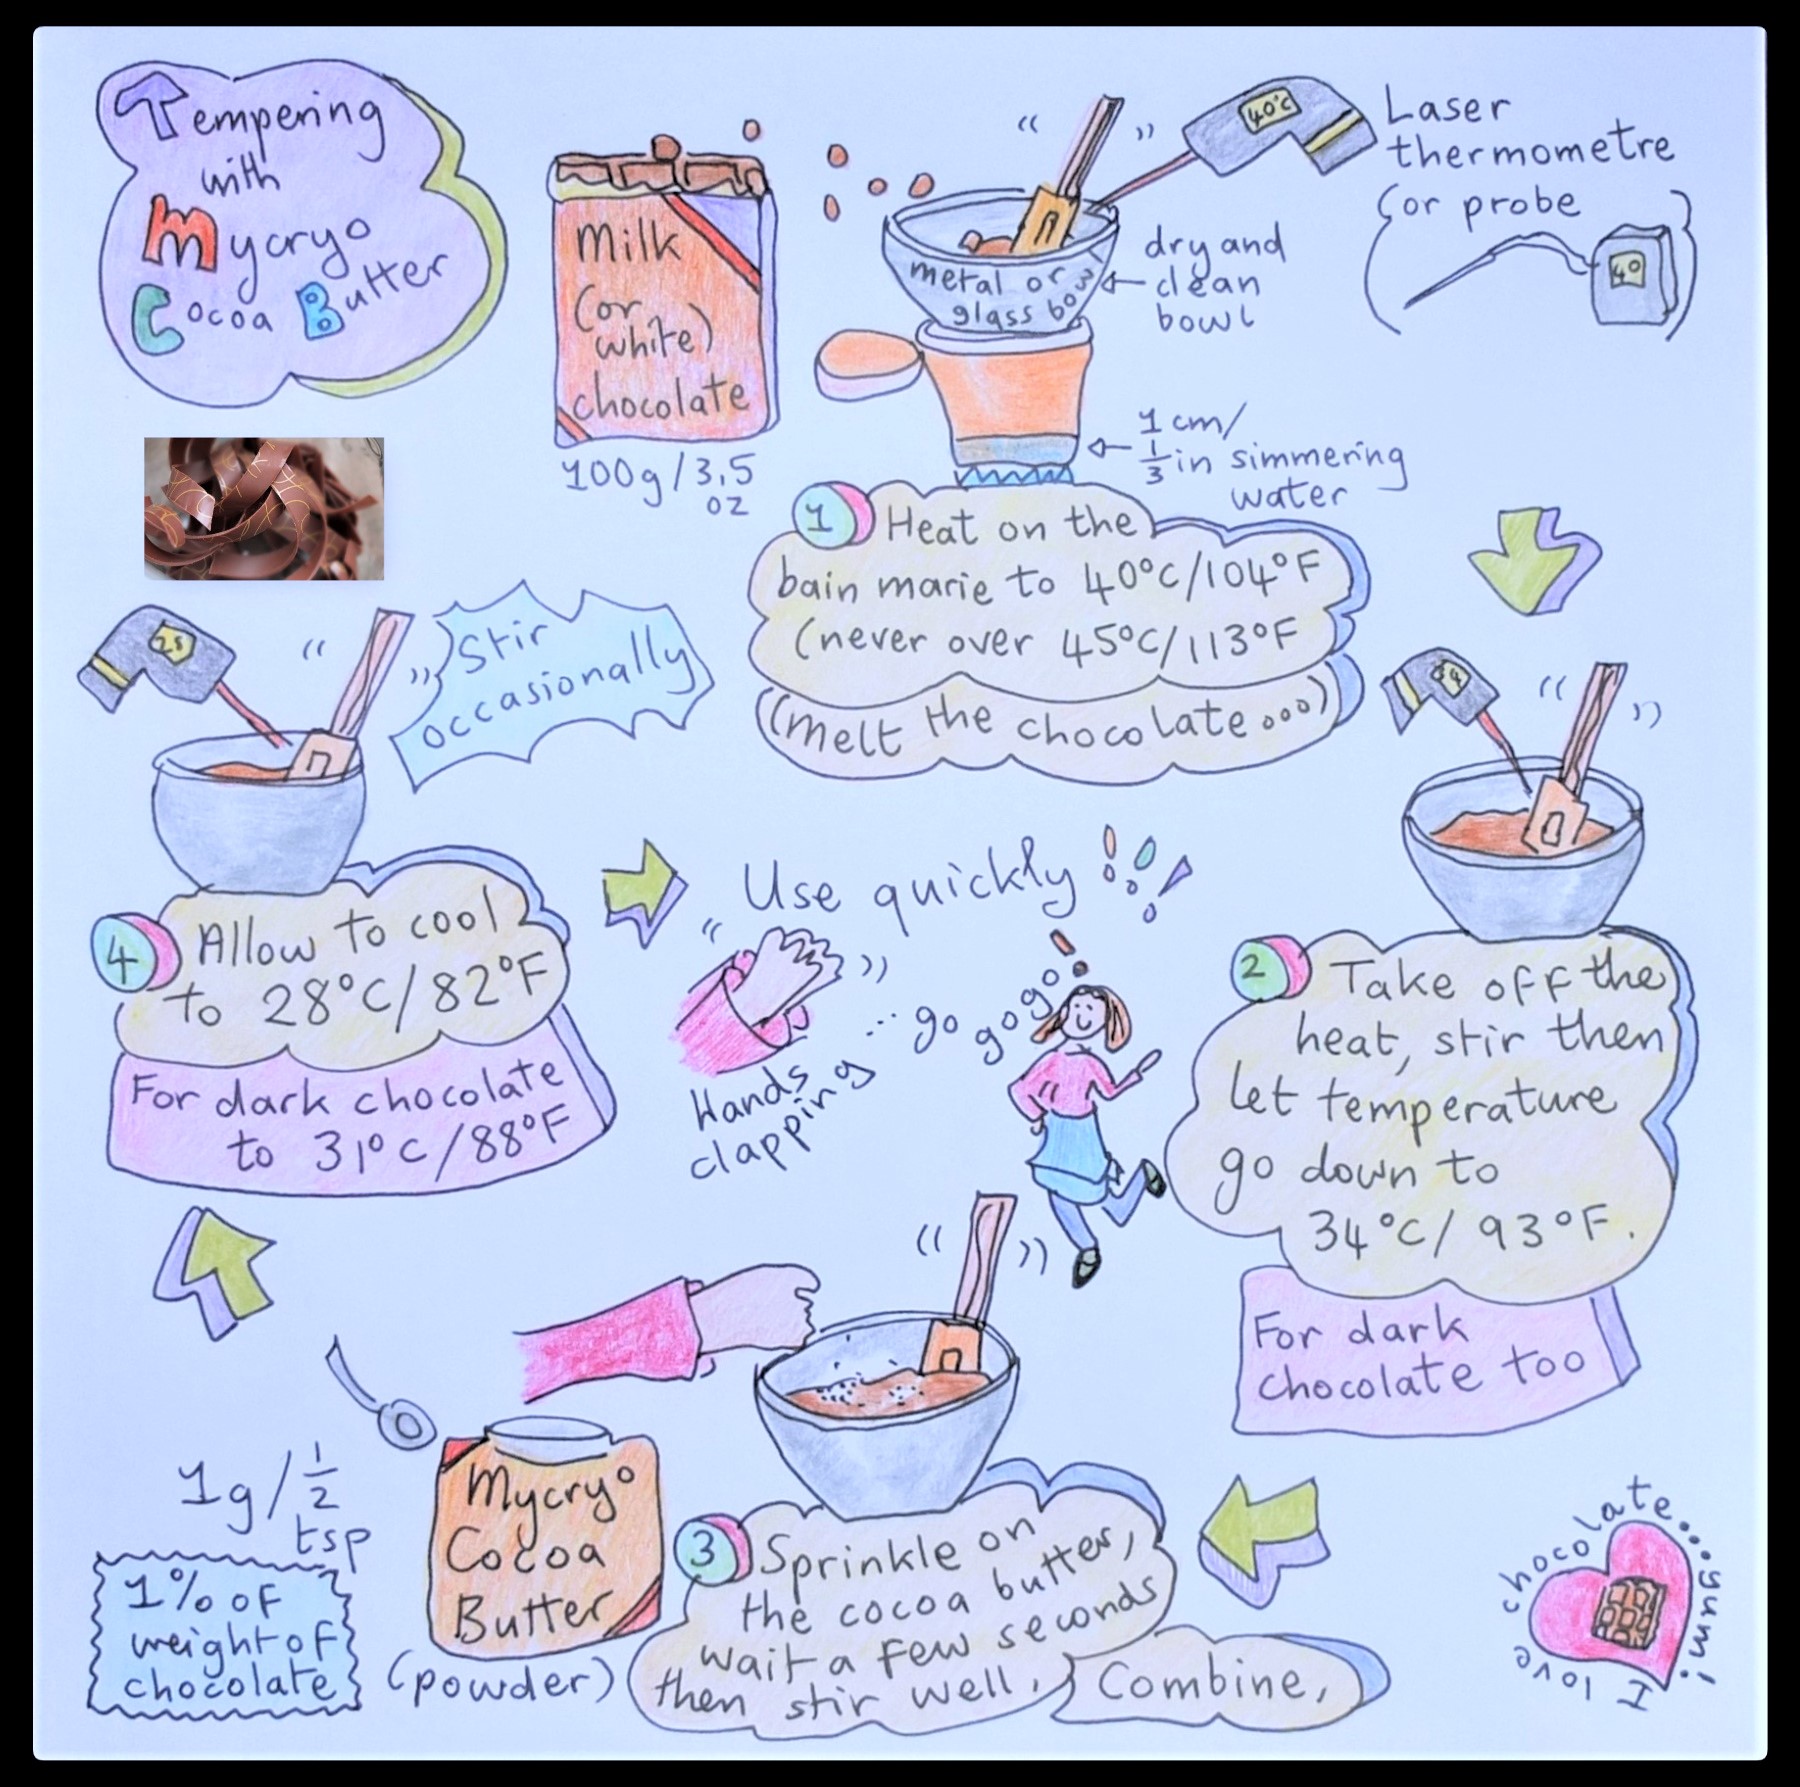 Tempering
with
Mycryo
Cocoa Butter
Milk
(or
white)
chocolate
100g/3,5
oz
40°C
Laser
thermometre
(or probe
)
40
metal or
glass bowl
dry and
clean
bowl
1 cm/
1/3 in simmering
water
1 Heat on the
bain marie to 40°C/104°F
(never over 45°C/113°F
(melt the chocolate...)
34
2 Take off the
heat, stir then
let temperature
go down to
34°C/ 93°F.
For dark
chocolate too
Mycryo
Cocoa
Butter
(powder)
1g/1/2
tsp
1% of
weight of
chocolate
3 Sprinkle on
the cocoa butter,
wait a few seconds
then stir well,
Combine,
28
Stir
occasionally
4 Allow to cool
to 28°C/82°F
For dark chocolate
to 31°C/88°F
Use quickly !!!
Hands
clapping
... go go go
I love chocolate...yum!